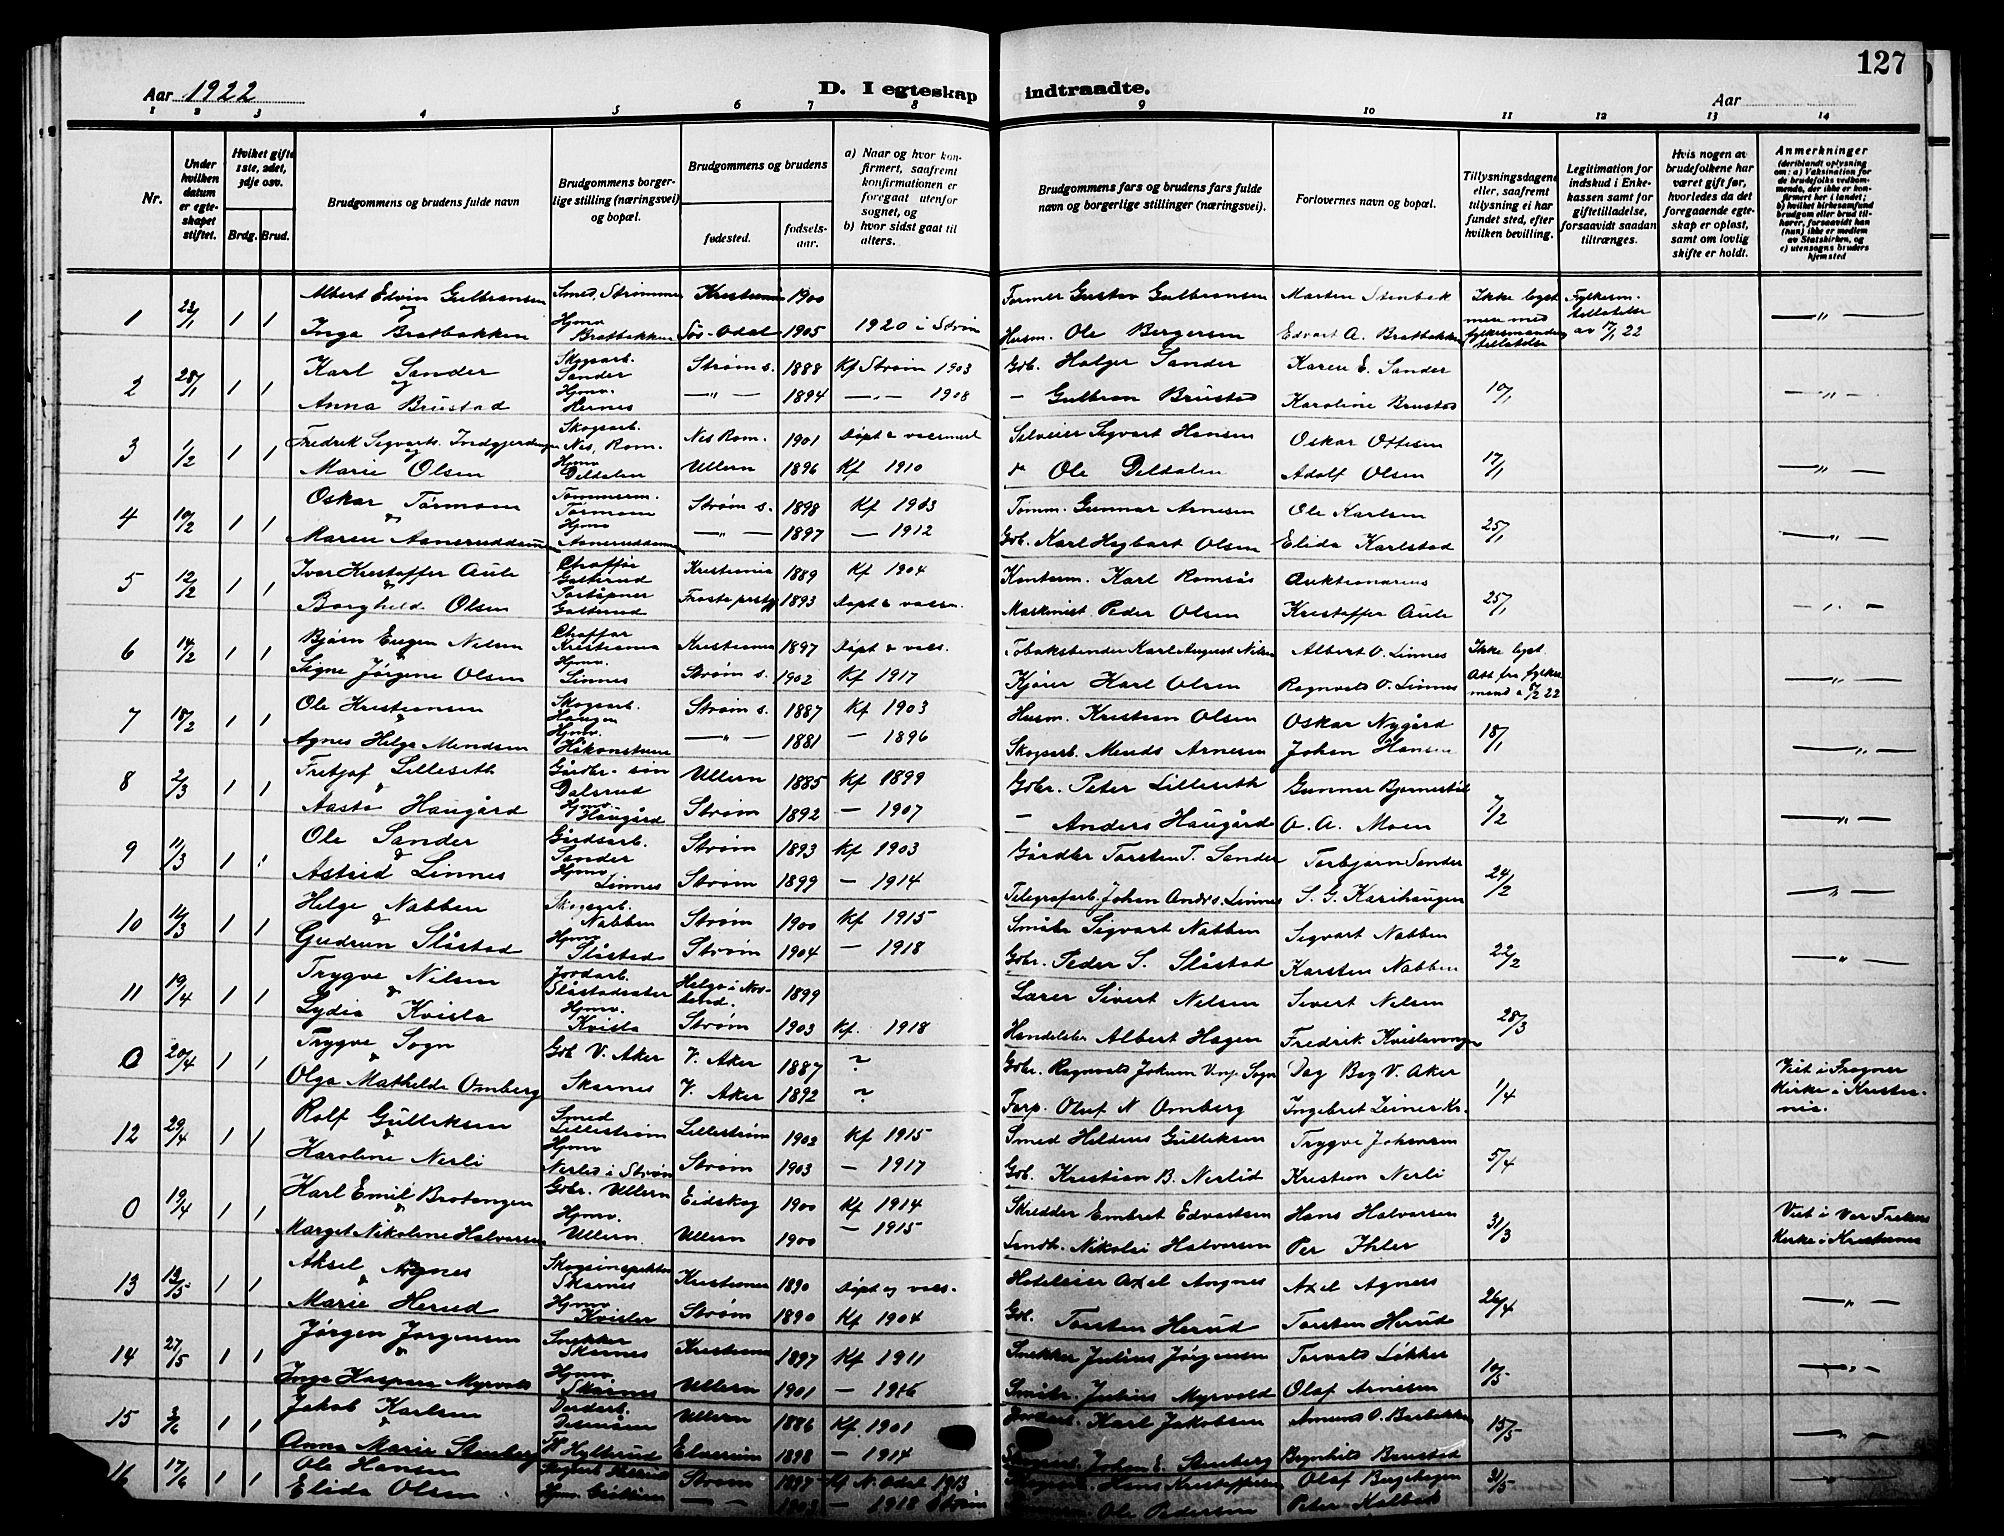 127
Aar 1922
D. I egteskap indtraadte.
Aar
1 2 3 4 5 6 7 8 9 10 11 12 13 14
Nr.
Under hvilken datum er egteskapet stiftet.
Hvilket gifte 1ste, 2det, 3dje osv.
Brdg. Brud.
Brudgommens og brudens fulde navn
Brudgommens borgerlige stilling (næringsvei) og bopæl.
Brudgommens og brudens
fødested.
fødselsaar.
a) Naar og hvor konfirmert, saafremt konfirmationen er foregaat utenfor sognet, og
b) hvor sidst gaat til alters.
Brudgommens fars og brudens fars fulde navn og borgerlige stillinger (næringsvei).
Forlovernes navn og bopæl.
Tillysningsdagene eller, saafremt tillysning ei har fundet sted, efter hvilken bevilling.
Legitimation for indskud i Enkekassen samt for giftetilladelse, forsaavidt saadan tiltrænges.
Hvis nogen av brudefolkene har været gift før, hvorledes da det foregaaende egteskap er opløst, samt om lovlig skifte er holdt.
Anmerkninger
(deriblandt oplysning om: a) Vaksination for de brudefolks vedkommende, der ikke er konfirmert her i landet; b) hvilket kirkesamfund brudgom eller brud tilhører, forsaavidt han (hun) ikke er medlem av Statskirken, og c) utensogns bruders hjemsted
1 23/1 1 1 Albert Edvin Gulbransen Smed, Strømmen Kristiania 1900 Former Gustav Gulbransen Martin Stenbek Ikke lyst
og Inga Bratbakken Hjmv Bratbakken Sør-Odal 1905 1920 i Strøm Husm. Ole Bergersen Edvart A. Bratbakken
2 28/1 1 1 Karl Sander Skogsarb. Sander Strøm s. 1888 Kf Strøm 1903 Gbr. Holger Sander Karen E. Sander 10/1
og Anna Brustad Hjmv. Hernes —"— 1894 —"— 1908 — Gulbran Brustad Karoline Brustad
3 1/2 1 1 Fredrik Sigvarts. Skogsarb. Nes, Rom. Nes Rom. 1901 Døpt & Selveier Sigvart Hansen Oskar Ottesen 17/1
og Marie Olsen Hjmv Deldalen Ullern 1896 Kf 1910 Ole Deldalen Adolf Olsen
4 10/2 1 1 Oskar Tørmoen Tømmerm. Tørmoen Strøm s. 1898 Kf 1913 Tømm. Gunnar Arnesen Ole Karlsen 25/1
& Maren Hjmv —"— 1897 — 1912 Gbr. Karl Hagbart Olsen Elida Karlstad
5 12/2 1 1 Ivar Kristoffer Aule Chaffør Galterud Kristiania 1889 Kf 1904 Kontorm. Karl Romsås 25/1
& Borghild Olsen Galterud 1893 Døpt & vacs. Maskinist Peder Olsen Kristoffer Aule
6 14/2 1 1 Bjørn Eugen Nilsen Chaffør Kristiania Kristiania 1897 Døpt & vacs. Tobaksbinder Karl August Nilsen Albert O. Linnes Ikke lyst.
& Signe Jørgine Olsen Hjmv. Linnes Strøm s. 1902 Kf 1917 Kjører Karl Olsen Ragnvald O. Linnes
7 18/2 1 1 Ole Kristiansen Skogsarb. Haugen Strøm s. 1887 Kf 1903 Husm. Kristian Olsen Oskar Nygård 18/1
& Agnes Helga Mendsen Hjmv. Håkonstuen —"— 1881 — 1896 Skogsarb. Mends Arnesen Johan Hansen
8 2/3 1 1 Fritjof Lilleseth Gårdbr. søn Dalsrud Ullern 1885 Kf 1899 Gbr. Peter Lilleseth 7/2
& Aasta Haugård Hjmv. Haugård Strøm 1892 — 1907 — Anders Haugård O. A. Moen
9 11/3 1 1 Ole Sander Gårdsarb. Sander Strøm 1893 Kf 1903 Gårdbr Torsten T. Sander Torbjørn Sander 24/2
& Astrid Linnes Hjmv Linnes Strøm 1899 — 1914 Telegrafarb. Johan Andrs. Linnes S. G. Karihaugen
10 12/3 1 1 Helge Nabben Skogsarb. Nabben Strøm 1900 Kf 1915 Småbr Sigvart Nabben Sigvart Nabben 22/2
& Gudrun Slåstad Hjmv Slåstad Strøm 1904 — 1918 Gbr. Peder S. Slåstad Karsten Nabben
11 19/4 1 1 Trygve Nilsen Jordarb. Slåstadsæter Helgø i Nordland. 1899 Lærer Sivert Nilsen Sivert Nilsen 28/3
& Lydia Kvisla Hjmv. Kvisla Strøm 1903 Kf. 1918 Albert Hagen
0 20/4 1 1 Trygve Sogn Gbr V. Aker V. Aker 1887 ? Gbr. Ragnvald Dag Bøg V. Aker 1/4 Viet i Frogner
& Olga Mathilde Omberg Skarnes V. Aker 1892 ? Forp. Oluf N Omberg Kirke i Kristiania.
12 29/4 1 1 Rolf Gulliksen Smed Lillestrøm Lillestrøm 1902 Kf 1915 Smed Gulliksen Trygve Johansen 5/4
& Karoline Nerli Hjmv Nerlid i Strøm Strøm 1903 — 1917 Gbr. Kristian B. Nerlid Kristian Nerli
0 19/4 1 1 Karl Emil Brotangen Gbr. Ullern Eidskog 1900 Kf 1914 Skredder Embret Edvartsen Hans Halvorsen 31/3 Viet i Vor Frelsers
& Margit Nikoline Halvorsen Hjmv. Ullern. Ullern 1900 — 1915 Nikolai Halvorsen Per Ihler Kirke i Kristiania
13 13/5 1 1 Aksel Agnes Skogsinspektør Skarnes Kristiania 1890 Døpt og vacs. Hoteleier Axel Angnes Axel Agness 26/4
& Marie Herud Hjmv Kvisler Strøm 1890 Kf 1904 Gbr. Torsten Herud Torsten Herud
14 27/5 1 1 Jørgen Jørgensen Snekker Skarnes Kristiania 1897 Kf 1911 Snekker Julius Jørgensen Torvald Løkker 10/5
& Inga Kaspara Myrvold Hjmv. Skarnes Ullern 1901 — 1916 Småbr. Julius Myrvold Olaf Arnesen
15 3/6 1 1 Jakob Karlsen Ullern 1886 Kf. 1901 Jordarb. Karl Jakobsen 15/5
& Anna Marie Stenberg Hylterud Elverum 1898 — 1914 Johan E. Stenberg Brynhild Brustad
16 17/6 1 1 Ole Hansen Strøm 1897 Kf N. Odal 1913 Hans Kristoffersen Olaf Berghagen 31/5
Elida Olsen Hjmv. —"— 1903 — 1918 Strøm Ole Pedersen Peter